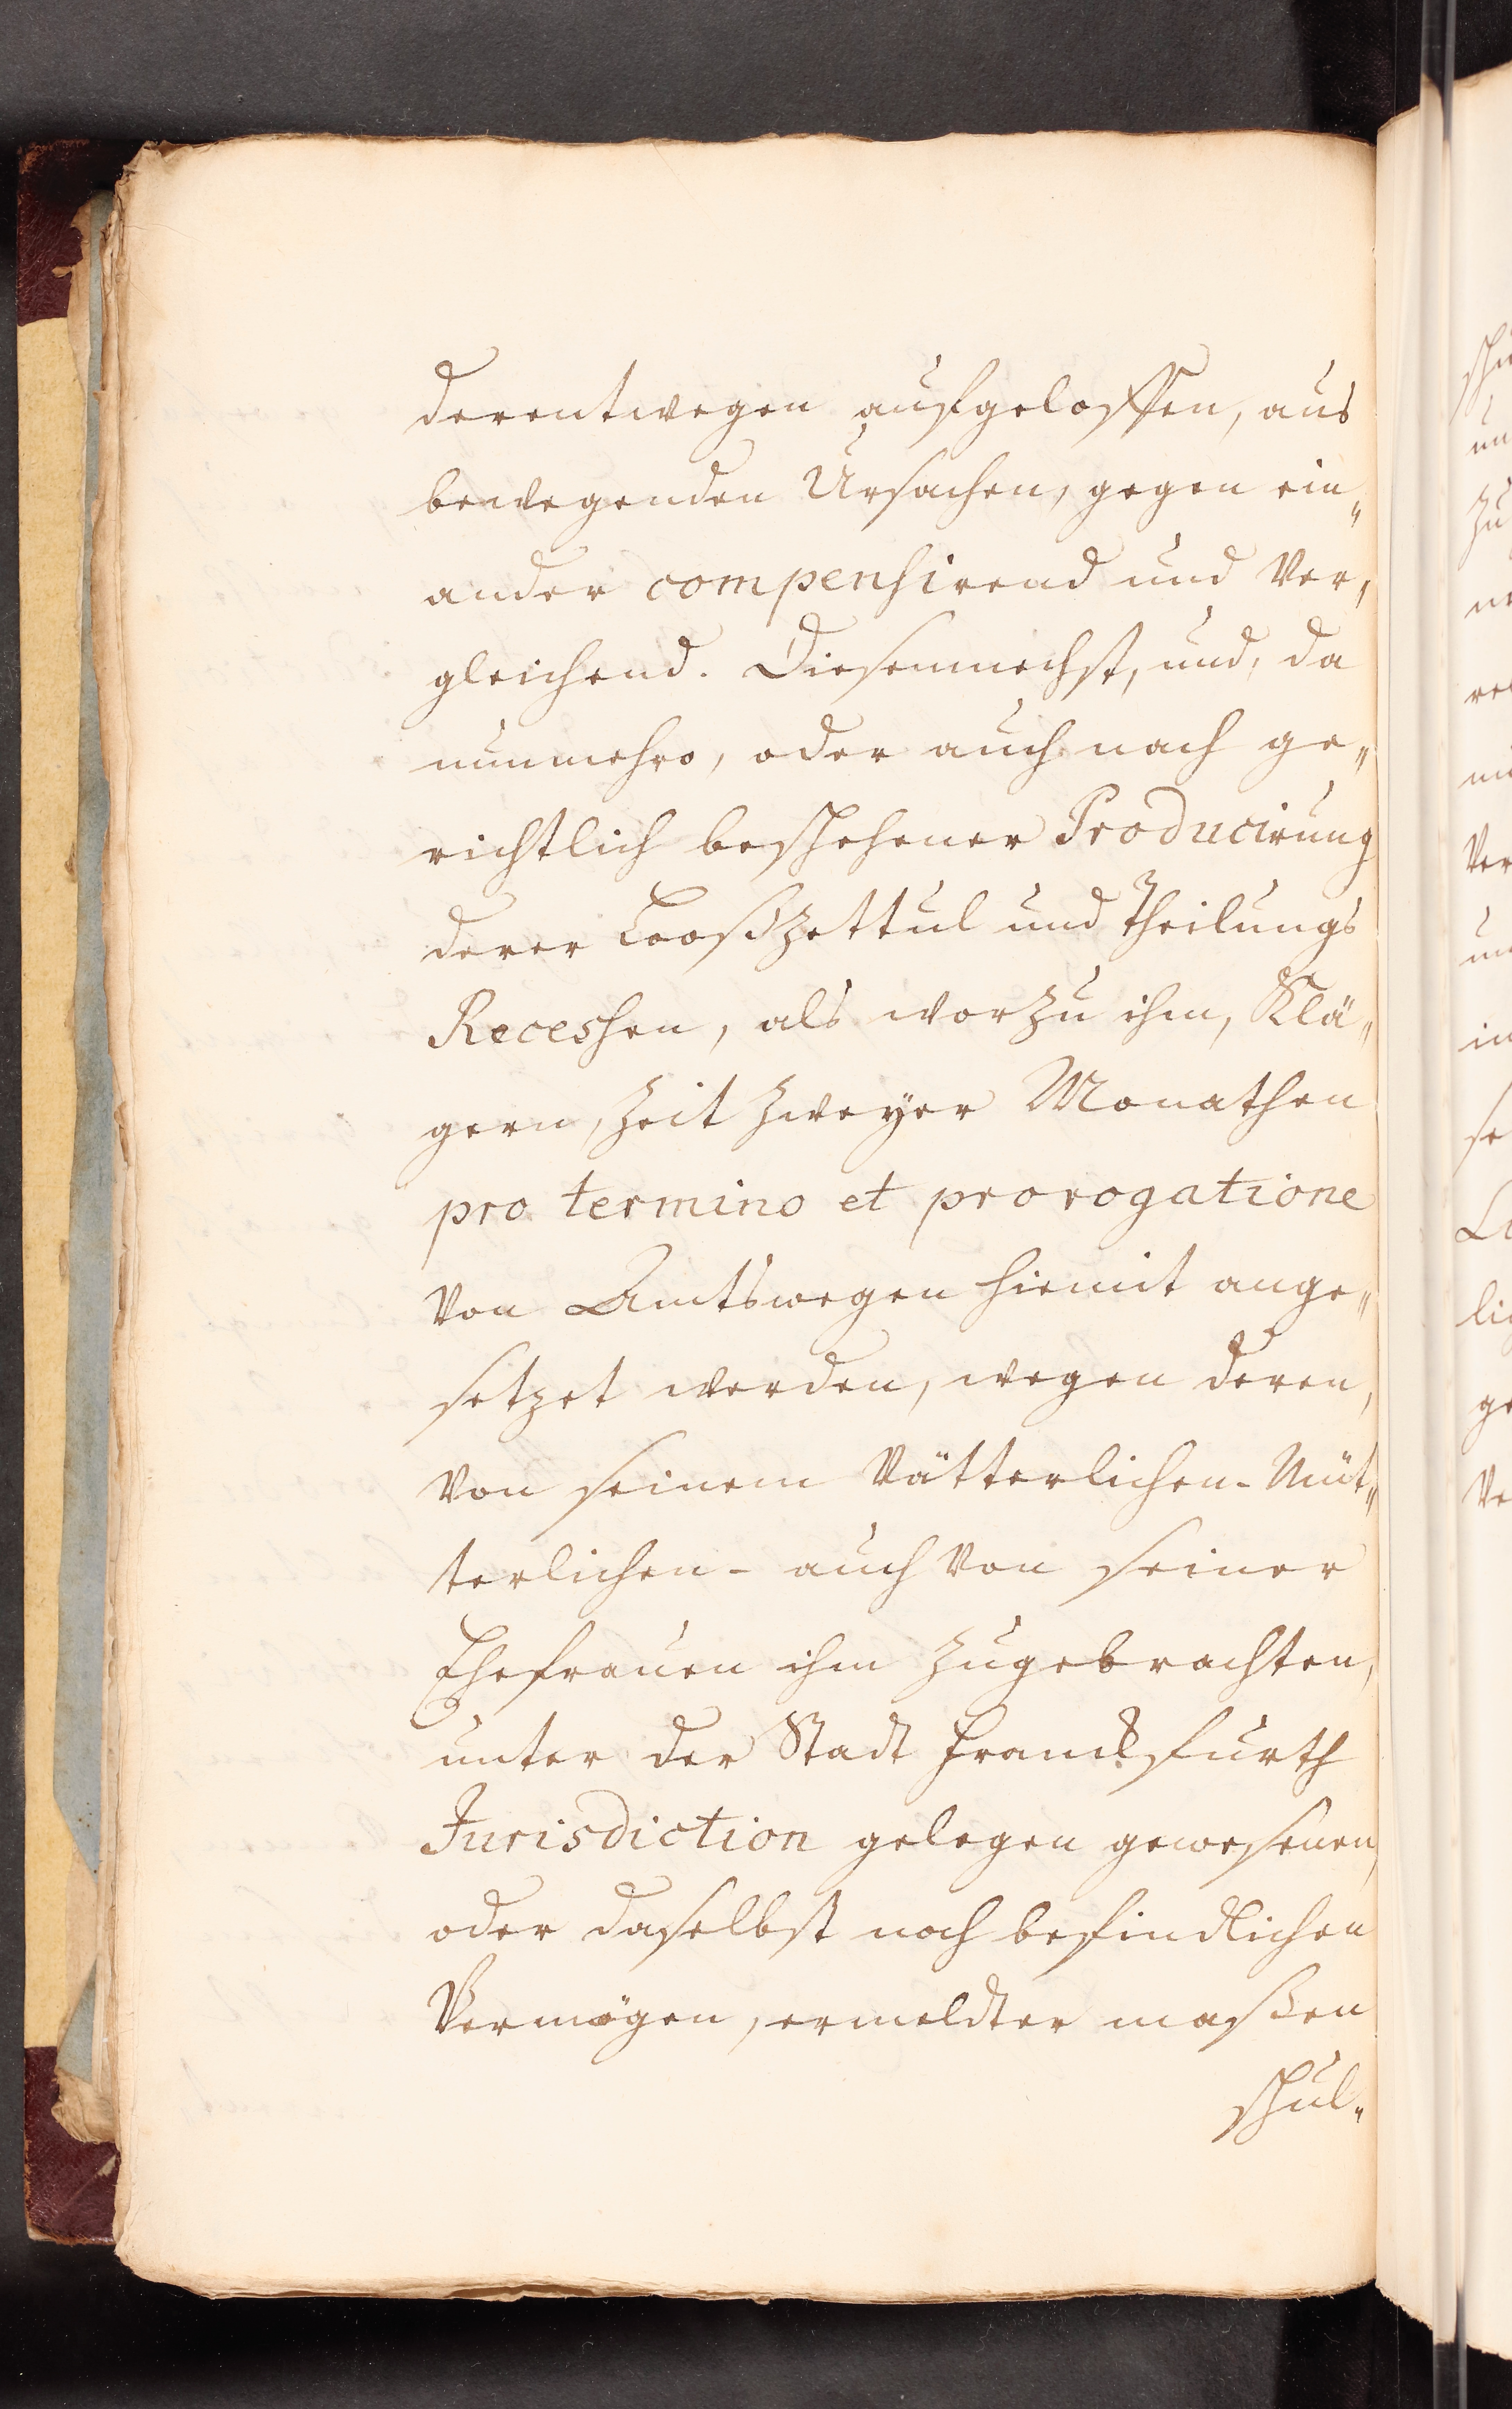 derentwegen aufgeloffen, aus
bewegenden Ursachen, gegen ein„
ander compensirend und Ver„
gleichend. Diesemnechst, und, da
nunmehro, oder auch nach ge„
richtlich beschehener Producirung
derer Looßzettul und Theilungs
Recessen, als worzu ihm, Klä„
gern, Zeit Zweyer Monathen
pro termino et prorogatione
Von Amtswegen hiemit ange„
setzet werden, wegen deren,
Von seinem Vätterlichen- Müt„
terlichen- auch Von seiner
Ehefrauen ihm Zugebrachten,
unter der Stadt Franckfurth
Jurisdiction gelegen gewesenen,
oder daselbst noch befindlichen
Vermögen, ermeldter maßen
schul„